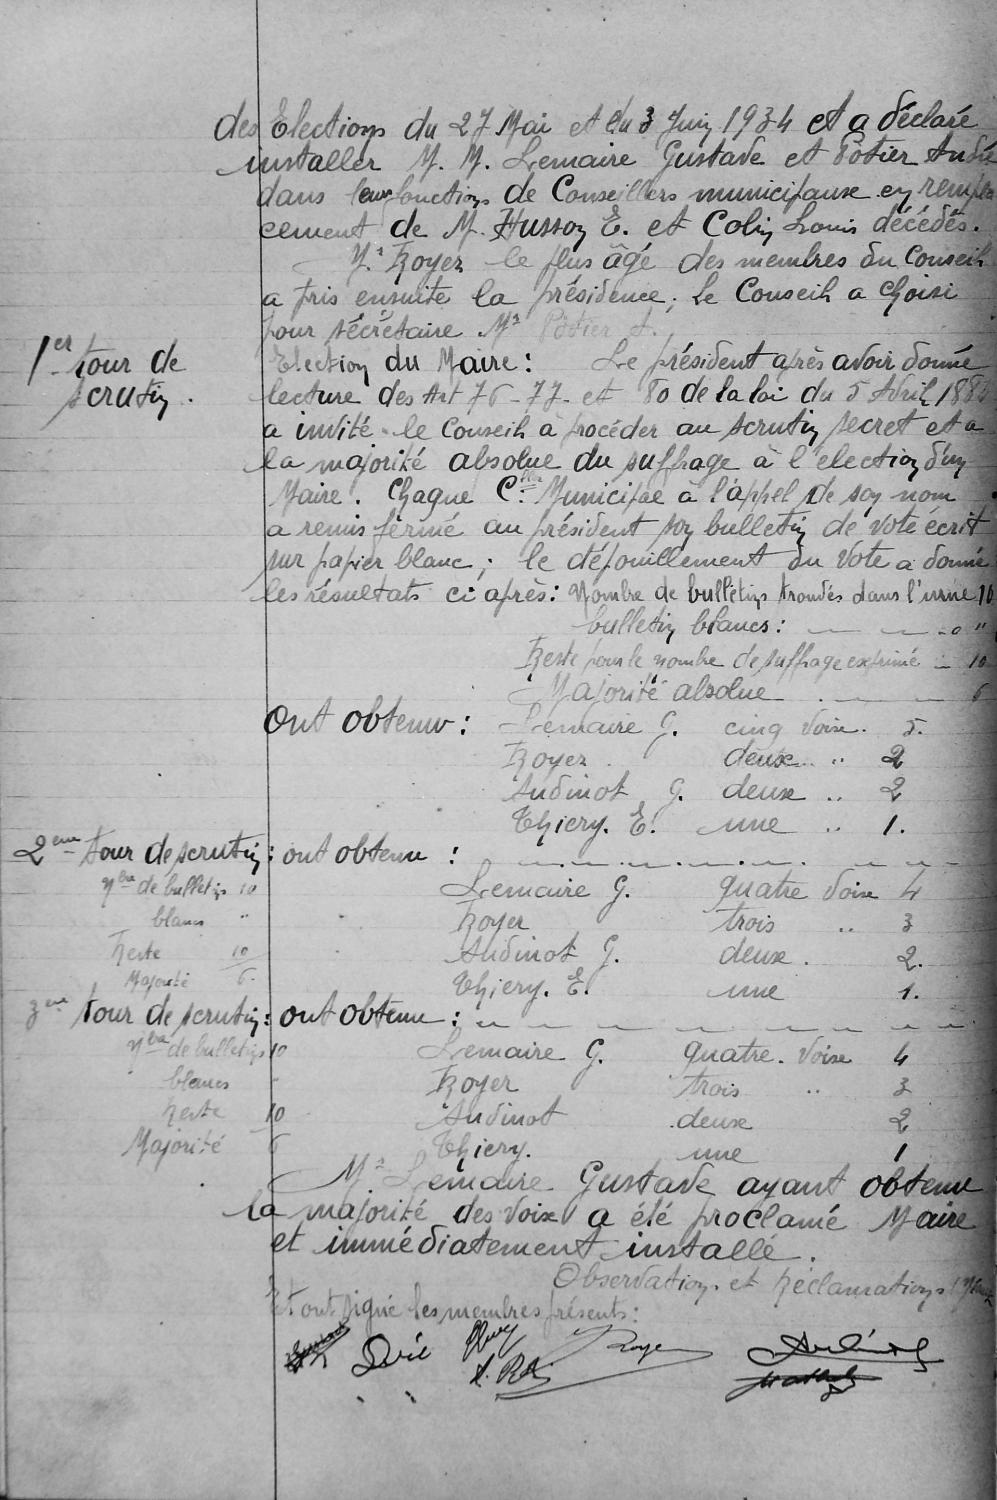 des Elections du 27 Mai et du 3 Juin 1934 et a déclaré
installer M. M. Lemaire Gustave et Potier André
dans leurs fonctions de Conseillers municipaux en rempla
cement de M. Husson E. et Colin Louis décédés.
Mr Royer le plus âgé des membres du Conseil
a pris ensuite la présidence. Le Conseil a choisi
pour sécrétaire Mr Potier A.
1er tour de
scrutin.
Election du Maire : Le président après avoir donné
lecture des Art 76 - 77 - et 80 de la loi du 5 Avril 1884
a invité le Conseil à procéder au scrutin secret et a
la majorité absolue du suffrage à l'élection d'un
Maire. Chaque Cer Municipae à l'appel de son nom
a remis fermé au président son bulletin de vote écrit
sur papier blanc ; le dépouillement du vote a donné
les résultats ci après : Nombre de bulletins trouvés dans l'urne 10
bulletin blancs : — — - o "
Reste pour le nombre de suffrage exprimé — 10
Majorité absolue — — 6
Ont obtenu : Lemaire G. cinq voix. 5.
Royer. deux .. 2
Audinot G. deux .. 2
Thiery. E. une .. 1.
2eme tour de scrutin : ont obtenu :
Nbre de bulletins 10
blancs "
Reste 10
Majorité 6.
Lemaire G. quatre voix 4
Royer trois .. 3
Audinot G. deux. 2.
Thiery. E. une 1.
3eme tour de scrutin : ont obtenu :
Nbre de bulletins 10
blancs "
Reste 10
Majorité 6
Lemaire G. quatre. voix 4
Royer trois .. 3
Audinot deux 2
Thiery. une 1
Mr Lemaire Gustave ayant obtenu
la majorité des voix a été proclamé Maire
et immédiatement installé.
Observations et Réclamations :
Et ont signé les membres présents :
Royer
Audinot